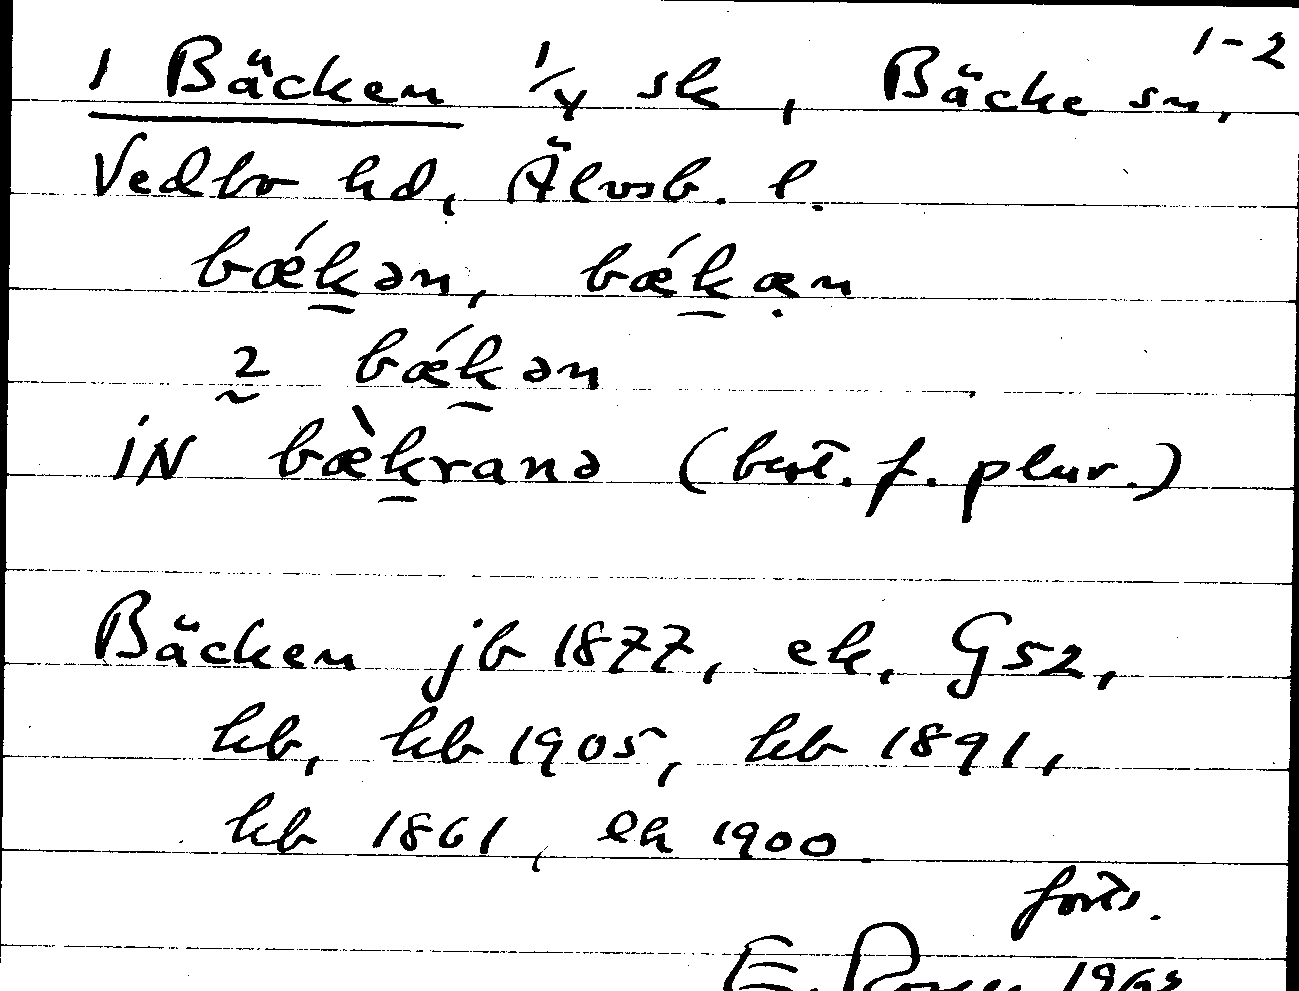 1-2
1 Bäcken 1/4 sk, Bäcke sn,
Vedbo hd, Älvsb. l.
bǽk̠ən, bǽk̠æ̣n
2̰ bǽk̠ən
iN bæ̀k̠ranə (best. f. plur.)
Bäcken jb 1877, ek, G52,
hb, kb 1905, hb 1891,
hb 1861, ek 1900.
forts.
E.